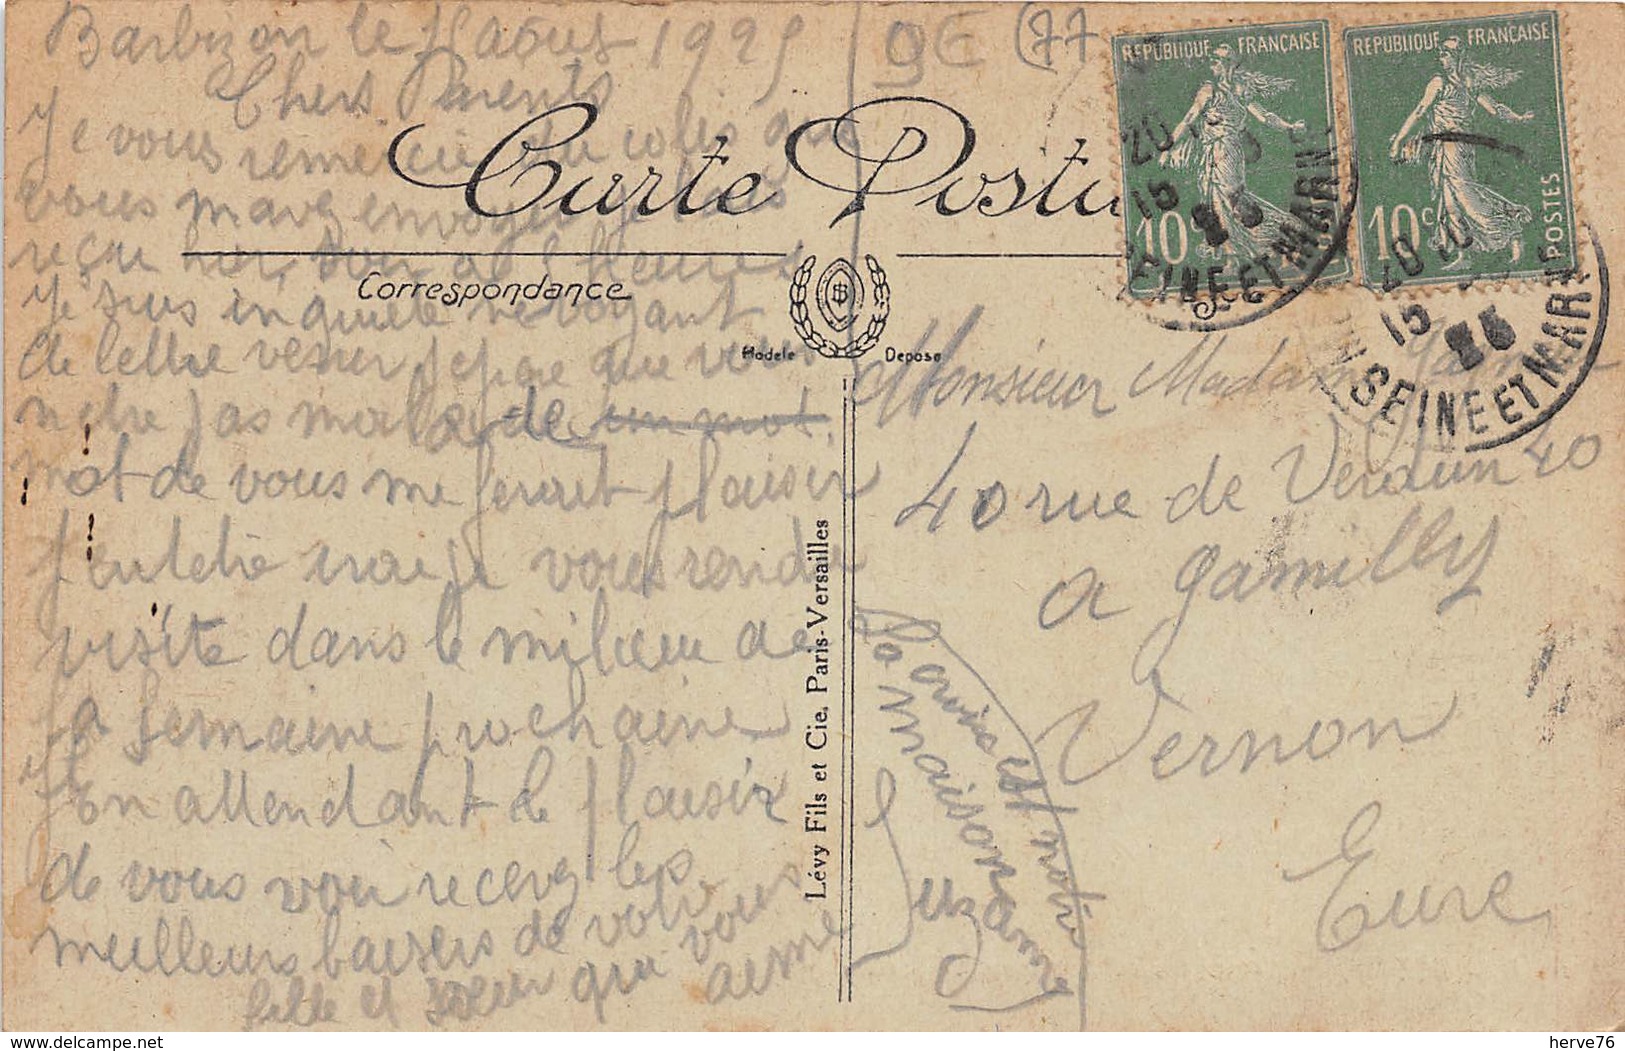 Barbizon le août 1925
Chers Parents
Je vous remercie du colis que
vous mavez envoyer je l'ais
reçue hier soir a 6 heures
Je suis inquiete ne voyant
de lettre venir que vous
netre pas malade un mot
mot de vous me ferait plaisir
peutetre irai je vous rendre
visite dans le milieu de
la semaine prochaine
En attendant le plaisir
de vous voir recevez les
meilleurs baisers de votre
fille et soeur qui vous
aime
Suzanne
la croix est notre
la maison
9E (77
Carte Posta
Correspondance
Modèle Déposé
Lévy Fils et Cie, Paris-Versailles
REPUBLIQUE FRANÇAISE
10c
REPUBLIQUE FRANÇAISE
10c
POSTES
20
15
25
SEINE ET MARNE
20
15
25
SEINE ET MARNE
Monsieur Madame
40 rue de Verdun 40
a Gamilly
Vernon
Eure
www.delcampe.net
herve76